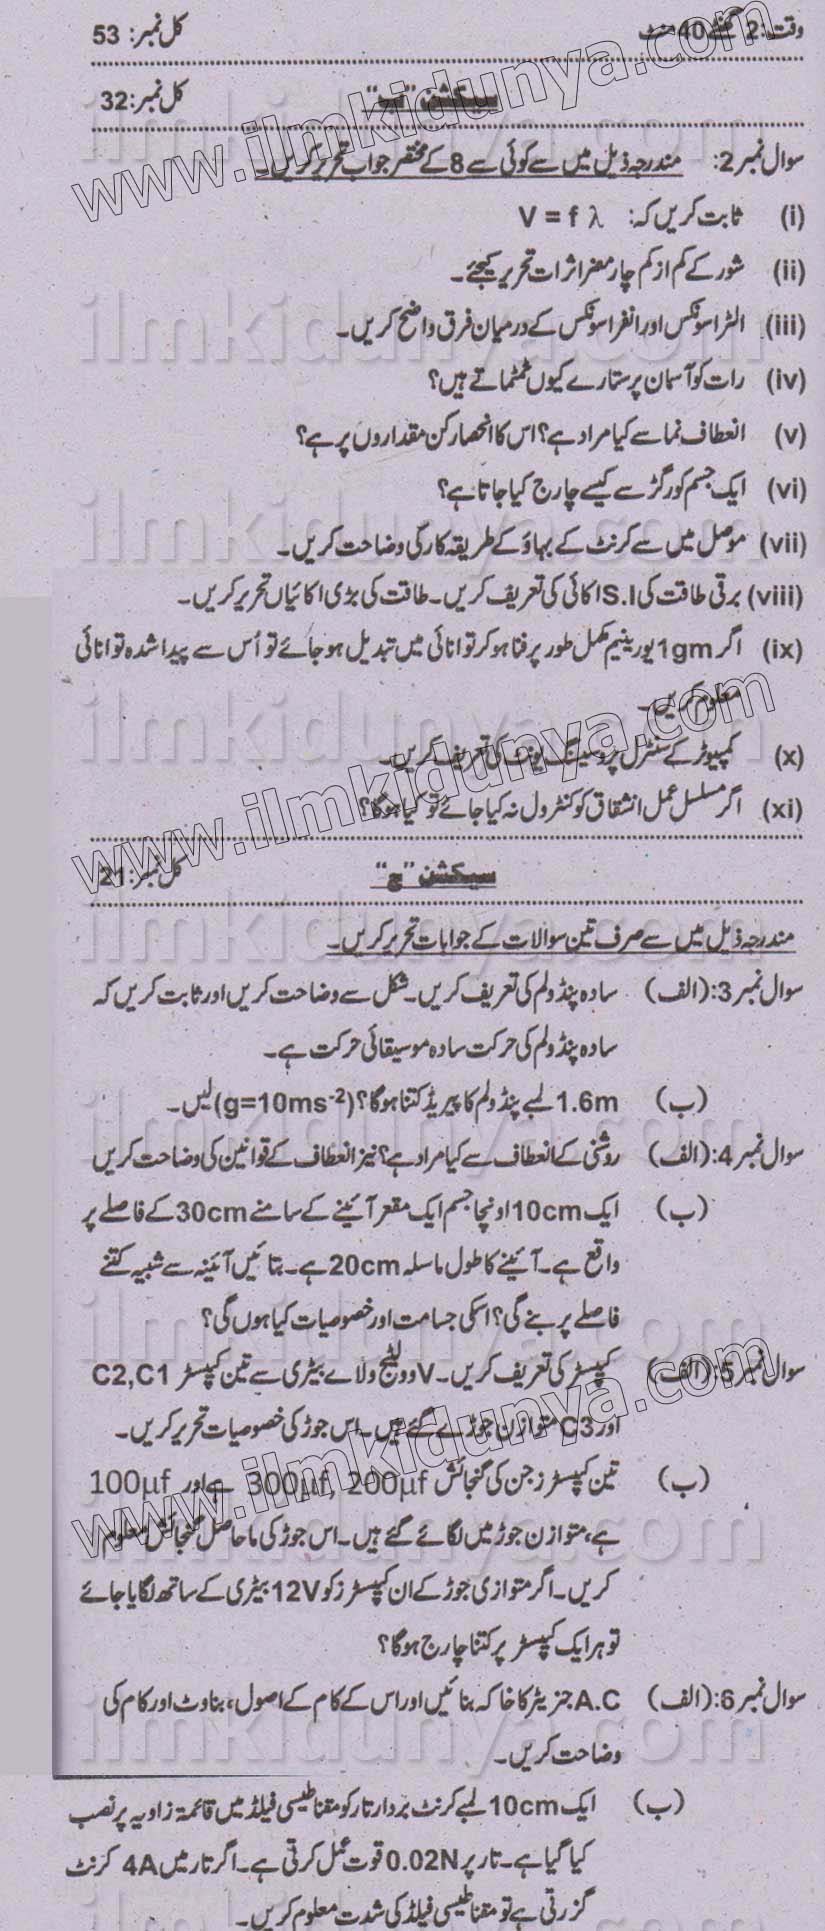 وقت: 2 گھنٹے 40 منٹ کل نمبر: 53
سیکشن "ب" کل نمبر: 32
سوال نمبر 2: مندرجہ ذیل میں سے کوئی سے 8 کے مختصر جواب تحریر کریں۔
(i) ثابت کریں کہ: V = f λ
(ii) شور کے کم از کم چار مضر اثرات تحریر کیجئے۔
(iii) الٹراسونکس اور انفراسونکس کے درمیان فرق واضح کریں۔
(iv) رات کو آسمان پر ستارے کیوں ٹمٹماتے ہیں؟
(v) انعطاف نما سے کیا مراد ہے؟ اس کا انحصار کن مقداروں پر ہے؟
(vi) ایک جسم کو رگڑ سے کیسے چارج کیا جاتا ہے؟
(vii) موصل میں سے کرنٹ کے بہاؤ کے طریقہ کار کی وضاحت کریں۔
(viii) برقی طاقت کی S.I اکائی کی تعریف کریں۔ طاقت کی بڑی اکائیاں تحریر کریں۔
(ix) اگر 1gm یورینیم مکمل طور پر فنا ہو کر توانائی میں تبدیل ہو جائے تو اُس سے پیدا شدہ توانائی
معلوم کریں۔
(x) کمپیوٹر کے سنٹرل پروسیسنگ یونٹ کی تعریف کریں۔
(xi) اگر مسلسل عمل انشقاق کو کنٹرول نہ کیا جائے تو کیا ہوگا؟
سیکشن "ج" کل نمبر: 21
مندرجہ ذیل میں سے صرف تین سوالات کے جوابات تحریر کریں۔
سوال نمبر 3: (الف) سادہ پنڈولم کی تعریف کریں۔ شکل سے وضاحت کریں اور ثابت کریں کہ
سادہ پنڈولم کی حرکت سادہ موسیقائی حرکت ہے۔
(ب) 1.6m لمبے پنڈولم کا پیریڈ کتنا ہوگا؟ (g=10ms⁻²) لیں۔
سوال نمبر 4: (الف) روشنی کے انعطاف سے کیا مراد ہے؟ نیز انعطاف کے قوانین کی وضاحت کریں
(ب) ایک 10cm اونچا جسم ایک مقعر آئینے کے سامنے 30cm کے فاصلے پر
واقع ہے۔ آئینے کا طول ماسلہ 20cm ہے۔ بتائیں آئینہ سے شبیہ کتنے
فاصلے پر بنے گی؟ اسکی جسامت اور خصوصیات کیا ہوں گی؟
سوال نمبر 5: (الف) کپیسٹر کی تعریف کریں۔ V وولٹیج والے بیٹری سے تین کپیسٹر C2,C1
اور C3 متوازن جوڑے گئے ہیں۔ اس جوڑ کی خصوصیات تحریر کریں۔
(ب) تین کپیسٹرز جن کی گنجائش 300μf, 200μf ہے اور 100μf
ہے، متوازن جوڑ میں لگائے گئے ہیں۔ اس جوڑ کی ماحاصل گنجائش معلوم
کریں۔ اگر متوازی جوڑ کے ان کپیسٹرز کو 12V بیٹری کے ساتھ لگایا جائے
تو ہر ایک کپیسٹر پر کتنا چارج ہوگا؟
سوال نمبر 6: (الف) A.C جنریٹر کا خاکہ بنائیں اور اس کے کام کے اصول، بناوٹ اور کام کی
وضاحت کریں۔
(ب) ایک 10cm لمبے کرنٹ بردار تار کو مقناطیسی فیلڈ میں قائمۃ زاویہ پر نصب
کیا گیا ہے۔ تار پر 0.02N قوت عمل کرتی ہے۔ اگر تار میں 4A کرنٹ
گزرتی ہے تو مقناطیسی فیلڈ کی شدت معلوم کریں۔
www.ilmkidunya.com
ilmkidunya.com
ilmkidunya.com
ilmkidunya.com
ilmkidunya.com
www.ilmkidunya.com
ilmkidunya.com
ilmkidunya.com
ilmkidunya.com
www.ilmkidunya.com
ilmkidunya.com
ilmkidunya.com